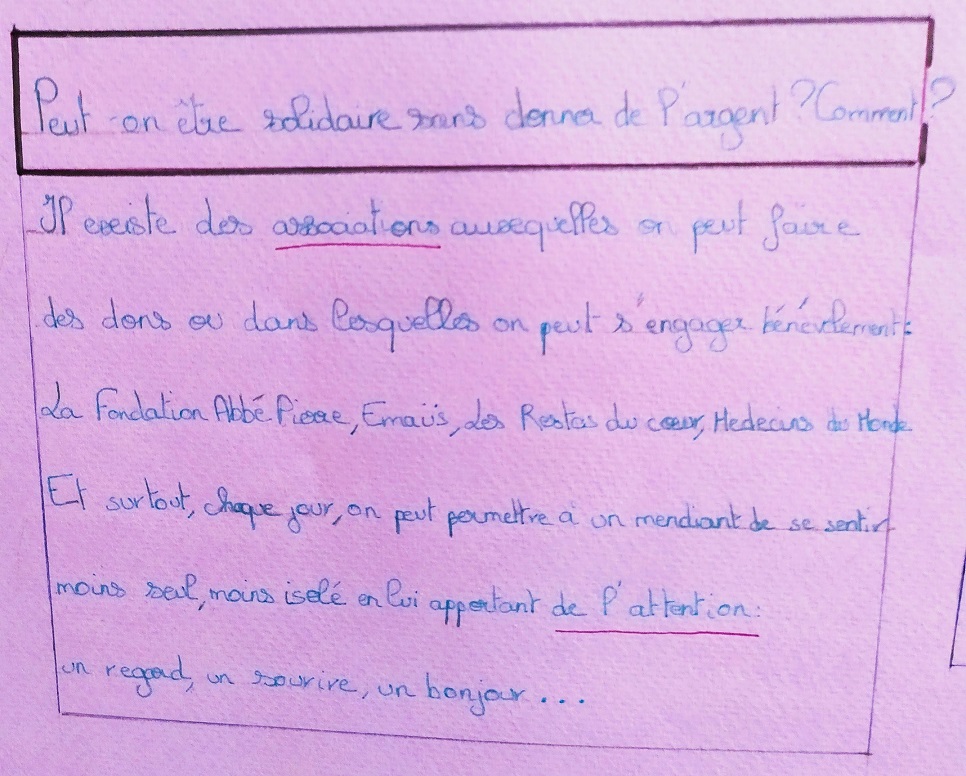 Peut-on être solidaire sans donner de l'argent ? Comment ?
Il existe des associations auxquelles on peut faire
des dons ou dans lesquelles on peut s'engager bénévolement :
La Fondation Abbé Pierre, Emaüs, les Restos du cœur, Medecins du Monde
Et surtout, chaque jour, on peut permettre à un mendiant de se sentir
moins seul, moins isolé en lui apportant de l'attention :
un regard, un sourire, un bonjour...